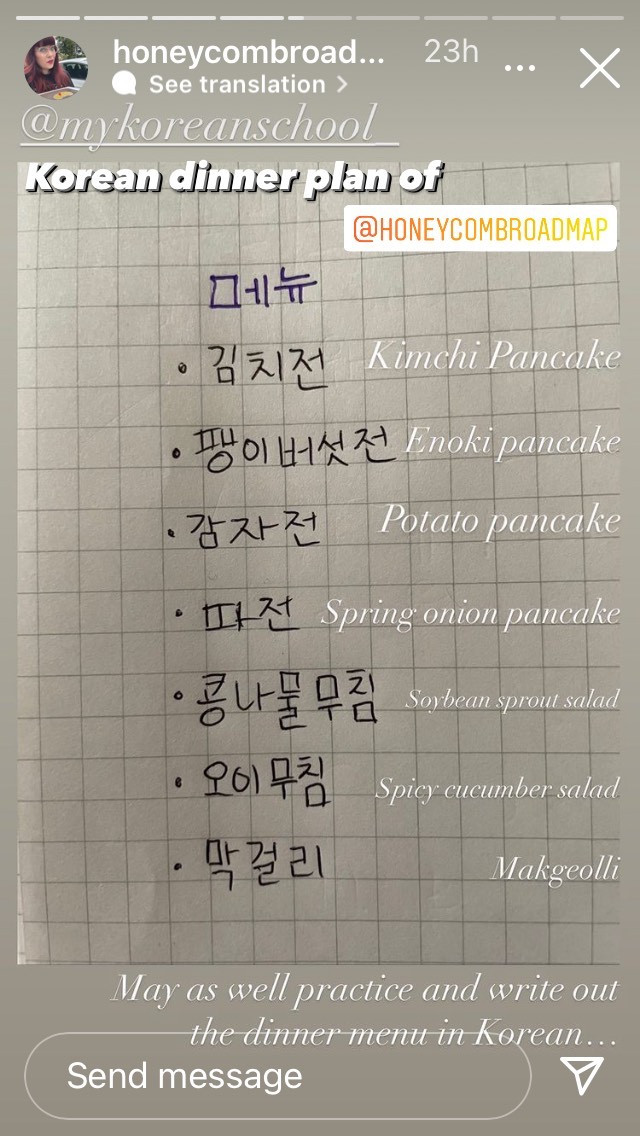 honeycombroad... 23h ...
See translation >
@mykoreanschool_
Korean dinner plan of
@HONEYCOMBROADMAP
메뉴
• 김치전 Kimchi Pancake
• 팽이버섯전 Enoki pancake
• 감자전 Potato pancake
• 파전 Spring onion pancake
• 콩나물무침 Soybean sprout salad
• 오이무침 Spicy cucumber salad
• 막걸리 Makgeolli
May as well practice and write out
the dinner menu in Korean...
Send message